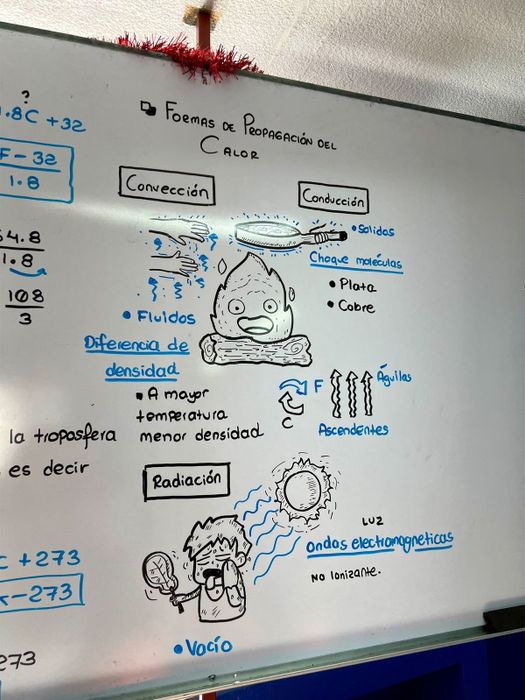 ?
1.8C + 32
F - 32
1.8
64.8
1.8
108
3
la troposfera
es decir
C + 273
K - 273
273
Formas de Propagación del
Calor
Convección
• Fluidos
Diferencia de
densidad
• A mayor
temperatura
menor densidad
Conducción
• Solidos
Choque moléculas
• Plata
• Cobre
F
C
Águilas
Ascendentes
Radiación
LUZ
Ondas electromagneticas
No Ionizante.
• Vacío